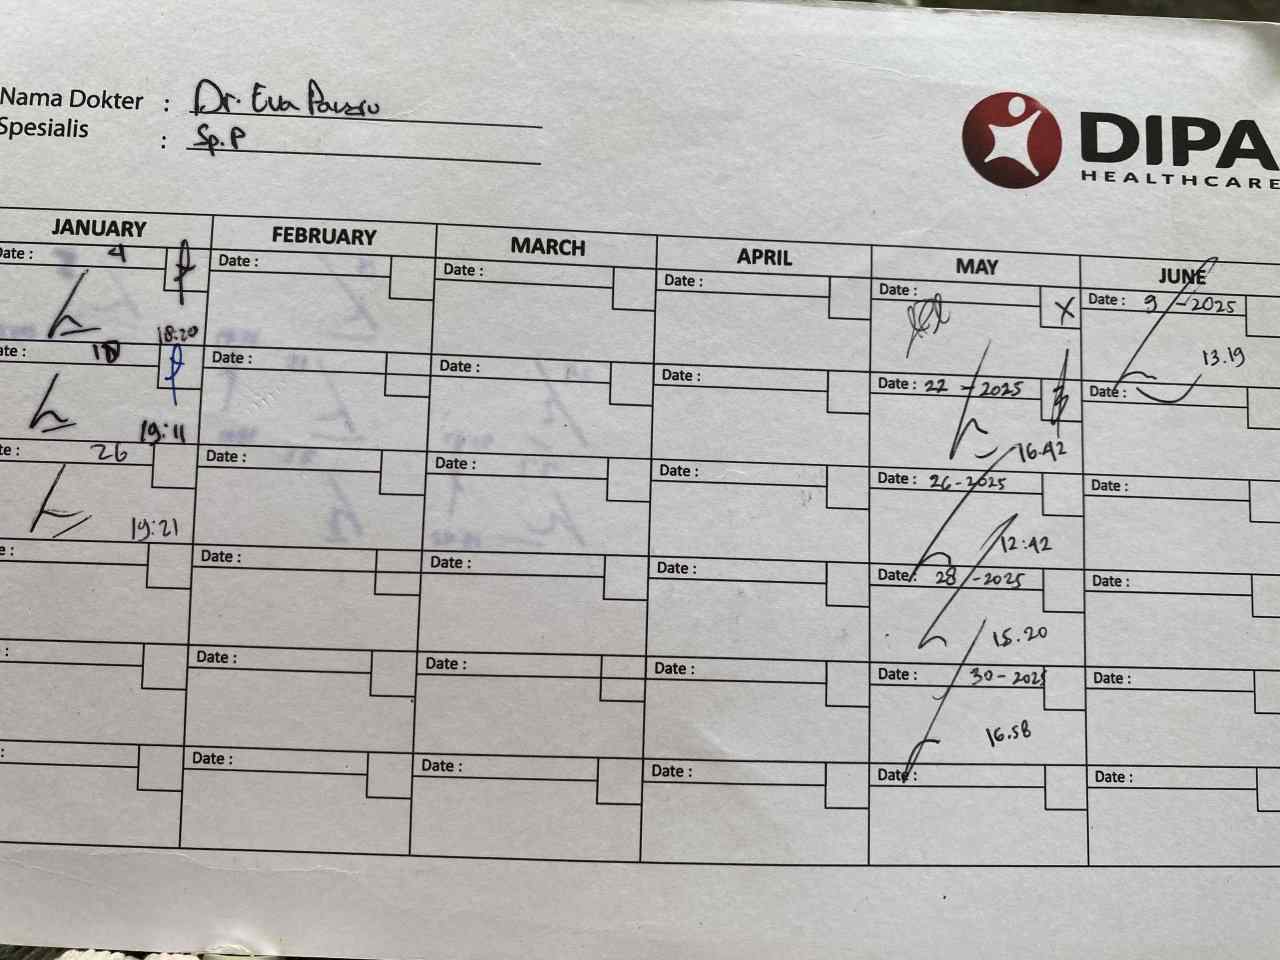 Nama Dokter : Dr. Eva
Spesialis : Sp.P
DIPA
HEALTHCARE
JANUARY FEBRUARY MARCH APRIL MAY JUNE
Date : 4 Date : Date : Date : Date : X Date : 9 - 2025
18:20 13.19
ate : 18 Date : Date : Date : Date : 22 - 2025 Date :
19:11 16.42
te : 26 Date : Date : Date : Date : 26 - 2025 Date :
19:21 12:42
e : Date : Date : Date : Date : 28 - 2025 Date :
15.20
: Date : Date : Date : Date : 30 - 2025 Date :
16.58
: Date : Date : Date : Date : Date :